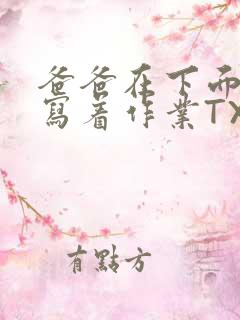 爸爸在下而
寫着作業TX
有點方